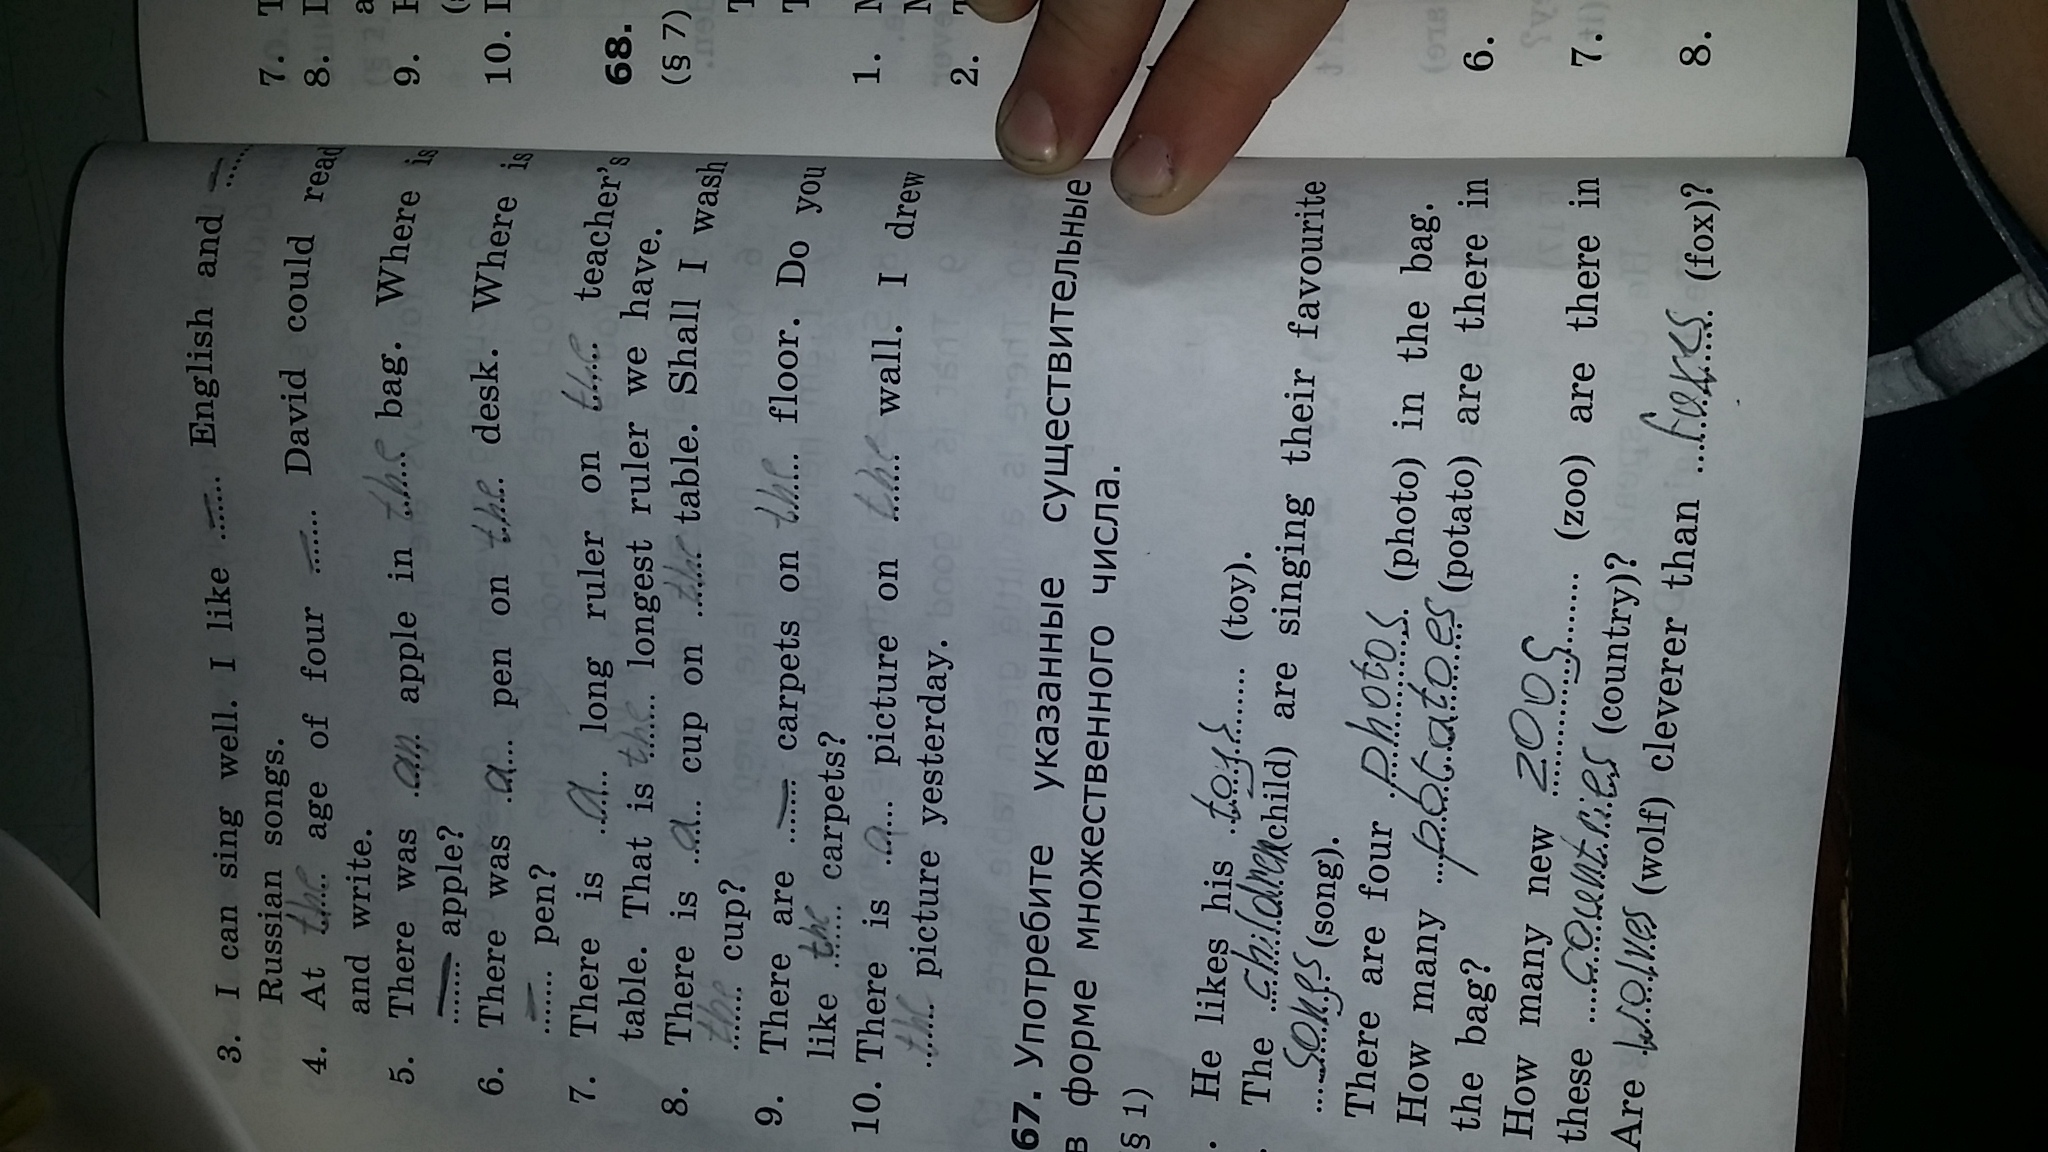 3. I can sing well. I like ..—.. English and ..—..
Russian songs.
4. At the age of four ..—.. David could read
and write.
5. There was an apple in the bag. Where is
— apple?
6. There was a pen on the desk. Where is
— pen?
7. There is a long ruler on the teacher's
table. That is the longest ruler we have.
8. There is a cup on the table. Shall I wash
the cup?
9. There are — carpets on the floor. Do you
like the carpets?
10. There is a picture on the wall. I drew
the picture yesterday.
67. Употребите указанные существительные
в форме множественного числа.
§ 1)
. He likes his toys (toy).
. The children (child) are singing their favourite
songs (song).
There are four photos (photo) in the bag.
How many potatoes (potato) are there in
the bag?
How many new zoos (zoo) are there in
these countries (country)?
Are wolves (wolf) cleverer than foxes (fox)?
7. T
8.
9.
10.
68.
(§ 7)
1.
2. T
6.
7.
8.